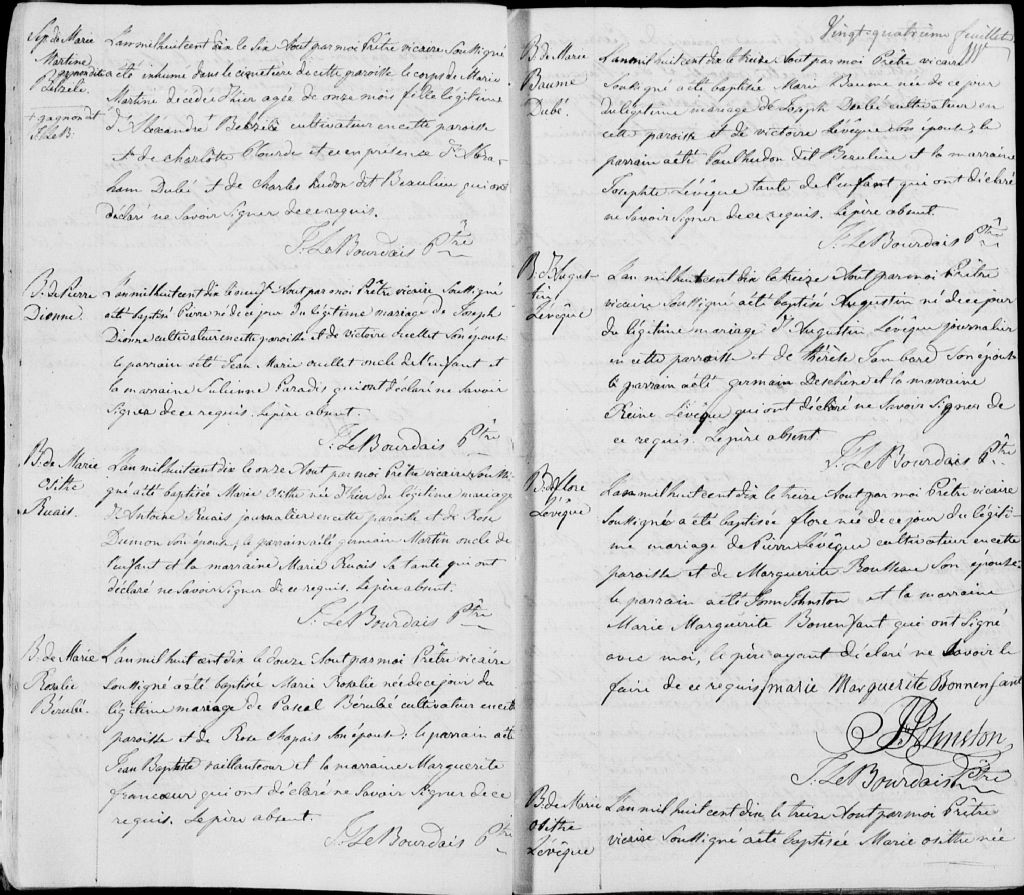 Sep. de Marie
Martine
Belzile.
+ gagnon dit
J. LeB:
L'an mil huit cent dix le Six Aout par moi Prêtre vicaire Soussigné
a été inhumé dans le cimetière de cette paroisse le corps de Marie
Martine décedée d'hier agée de onze mois fille légitime
d'Alexandre Belzile cultivateur en cette paroisse
et de Charlotte Plourde et ce en présence d'Abra-
ham Dubé et de Charles hudon dit Beaulieu qui ont
déclaré ne Savoir Signer de ce requis.
J. LeBourdais Ptre
B. de Pierre
Dionne.
L'an mil huit cent dix le neuf Aout par moi Prêtre vicaire Soussigné
a été baptisé Pierre né de ce jour du légitime mariage de Joseph
Dionne cultivateur en cette paroisse et de victoire Ouellet Son épouse
le parrain a été Jean Marie ouellet oncle de l'enfant et
la marraine Julienne Paradis qui ont déclaré ne Savoir
Signer de ce requis. Le père absent.
J. LeBourdais Ptre
B. de Marie
Osithe
Ruais.
L'an mil huit cent dix le onze Aout par moi Prêtre vicaire Soussi-
gné a été baptisée Marie Osithe née d'hier du légitime mariage
d'Antoine Ruais journalier en cette paroisse et de Rose
Dumon Son épouse; le parrain a été germain Martin oncle de
l'enfant et la marraine Marie Ruais Sa tante qui ont
déclaré ne Savoir Signer de ce requis. Le père absent.
J. LeBourdais Ptre
B. de Marie
Rosalie
Bérubé.
L'an mil huit cent dix le douze Aout par moi Prêtre vicaire
Soussigné a été baptisée Marie Rosalie née de ce jour du
légitime mariage de Pascal Bérubé cultivateur en cette
paroisse et de Rose Chapais Son épouse; le parrain a été
Jean Baptiste vaillancour et la marraine Marguerite
francœur qui ont déclaré ne Savoir Signer de ce
requis. Le père absent.
J. LeBourdais Ptre
Vingt-quatrième feuillet
B. de Marie
Baume
Dubé.
L'an mil huit cent dix le treize Aout par moi Prêtre vicaire
Soussigné a été baptisée Marie Baume née de ce jour
du légitime mariage de Joseph Dubé cultivateur en
cette paroisse et de victoire Lévêque Son épouse; le
parrain a été Paul hudon dit Beaulieu et la marraine
Josephte Lévêque tante de l'enfant qui ont déclaré
ne Savoir Signer de ce requis. Le père absent.
J. LeBourdais Ptre
B. d'Augus-
tin
Lévêque
L'an mil huit cent dix le treize Aout par moi Prêtre
vicaire Soussigné a été baptisé Augustin né de ce jour
du légitime mariage d'Augustin Lévêque journalier
en cette paroisse et de thérèse Jambard Son épouse
le parrain a été germain Deschène et la marraine
Reine Lévêque qui ont déclaré ne Savoir Signer de
ce requis. Le père absent
J. LeBourdais Ptre
B. de flore
Lévêque
L'an mil huit cent dix le treize Aout par moi Prêtre vicaire
Soussigné a été baptisée flore née de ce jour du légiti-
me mariage de Pierre Lévêque cultivateur en cette
paroisse et de Marguerite Rousseau Son épouse
le parrain a été John Johnston et la marraine
Marie Marguerite Bonenfant qui ont Signé
avec moi, le père ayant déclaré ne Savoir le
faire de ce requis marie Marguerite Bonnenfant
J Johnston
J. LeBourdais Ptre
B. de Marie
osithe
Lévêque
L'an mil huit cent dix le treize Aout par moi Prêtre
vicaire Soussigné a été baptisée Marie osithe née